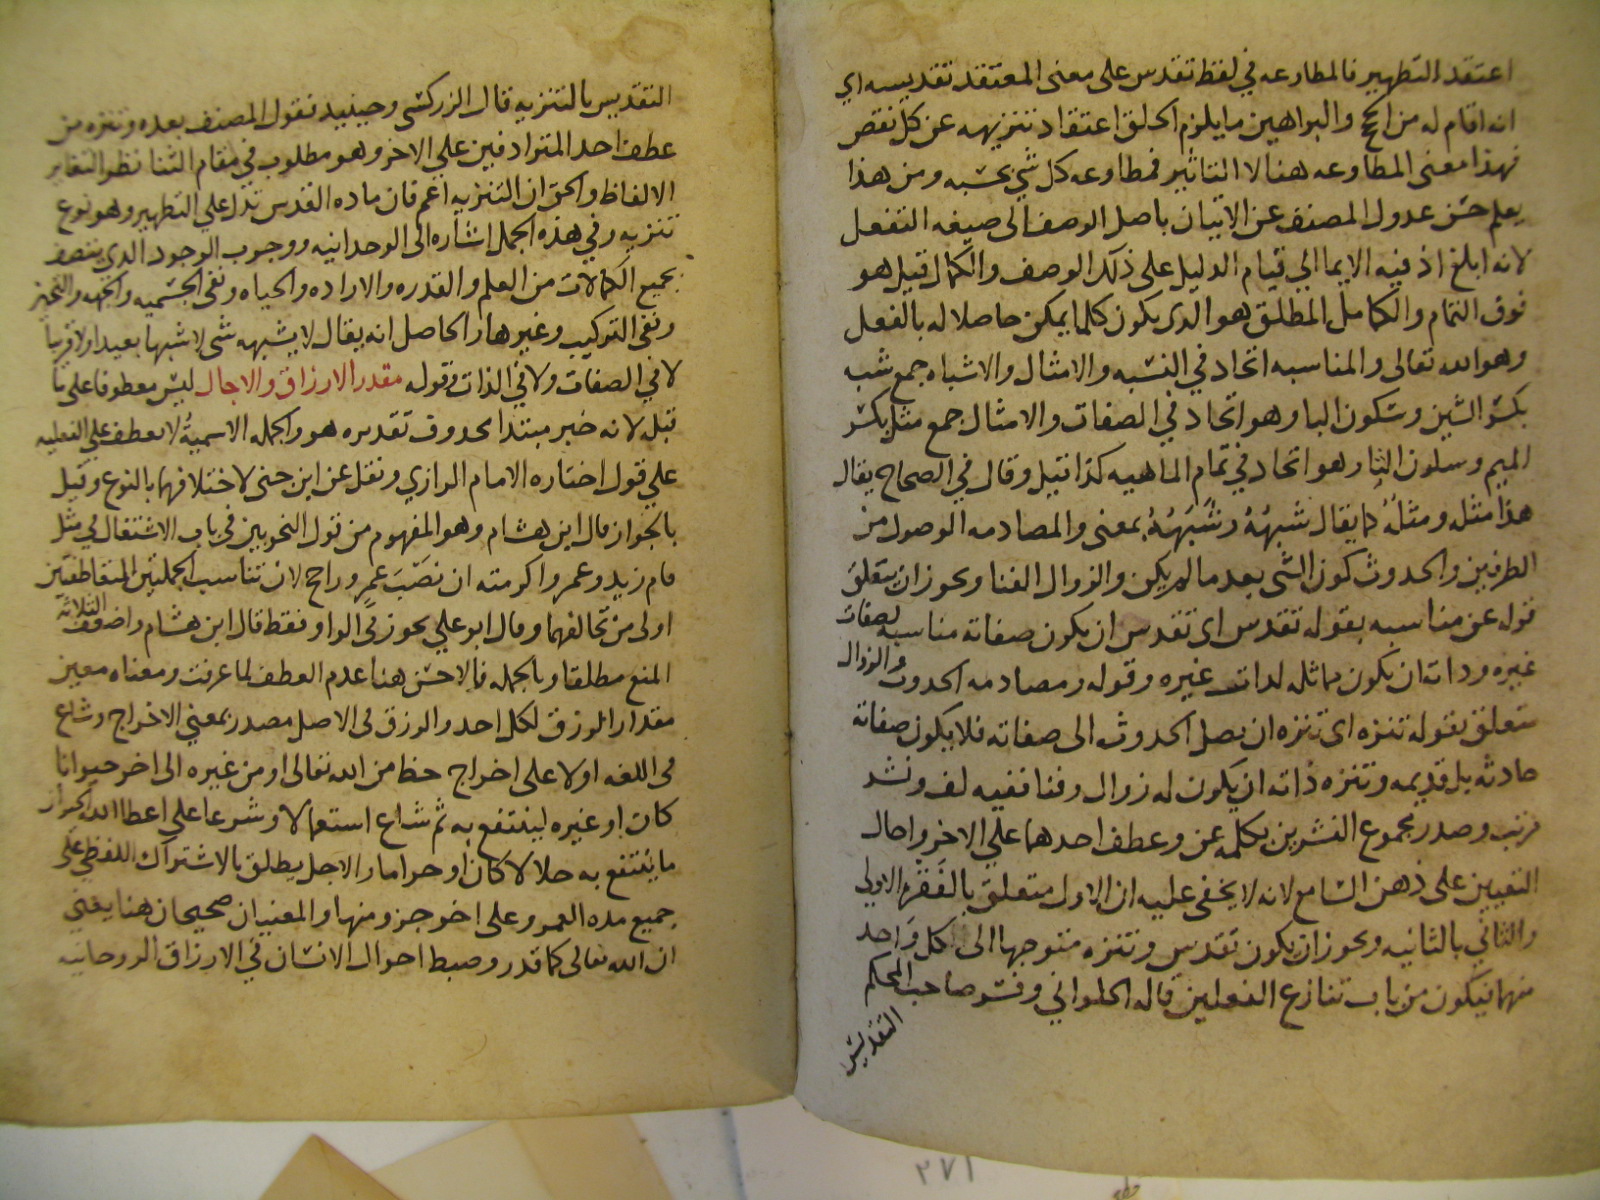 اعتقد التطهير فالمطاوعه في لفظ تقدس على معنى المعتقد تقديسه اي
انه اقام له من الحجج والبراهين ما يلزم الخلق اعتقاد تنزيهه عن كل نقص
فهذا معنى المطاوعه هنا لا التاثير فمطاوعه كل شي بحسبه ومن هذا
يعلم حسن عدول المصنف عن الاتيان باصل الوصف الى صيغه التفعل
لانه ابلغ اذ فيه الايما الي قيام الدليل على ذلك الوصف والكمال قيل هو
فوق التمام والكامل المطلق هو الذى يكون كلما يمكن حاصلا له بالفعل
وهو الله تعالى والمناسبه اتحاد في النسبه والامثال والاشباه جمع شبه
بكسر الشين وسكون البا وهو اتحاد في الصفات والامثال جمع مثل بكسر
الميم وسكون الثا وهو اتحاد في تمام الماهيه كذا قيل وقال في الصحاح يقال
هذا مثله ومثله كما يقال شبهه وشبهه بمعنى والمصادمه الوصول من
الطرفين والحدوث كون الشى بعد ما لم يكن والزوال الفنا ويجوز ان يتعلق
قوله عن مناسبه بقوله تقدس اى تقدس ان يكون صفاته مناسبه لصفات
غيره وذاته ان يكون مماثله لذات غيره وقوله ومصادمه الحدوث والزوال
متعلق بقوله تنزه اى تنزه ان يصل الحدوث الى صفاته فلا يكون صفاته
حادثه بل قديمه وتنزه ذاته ان يكون له زوال وفنا ففيه لف ونشر
مرتب وصدر مجموع النشرين بكلمه عن وعطف احدهما علي الاخر واحال
التعيين على ذهن السامع لانه لا يخفى عليه ان الاول متعلق بالفقره الاولى
والثاني بالثانيه ويجوز ان يكون تقدس وتنزه متوجها الى كل واحد
منهما فيكون من باب تنازع الفعلين قاله الحلواني وفسر صاحب المحكم
التقديس
التقديس بالتنزيه قال الزركشى وحينيد فقول المصنف بعده وتنزه من
عطف احد المترادفين علي الاخر وهو مطلوب في مقام الثنا نظر التغاير
الالفاظ والحق ان التنزيه اعم فان ماده القدس تدل علي التطهير وهو نوع
تنزيه وفي هذه الجمل اشاره الى الوحدانيه ووجوب الوجود الذي يتصف
بجميع الكمالات من العلم والقدره والاراده والحياه ونفى الجسميه والجهه والتحيز
ونفى التركيب وغيرها والحاصل انه يقال لا يشبهه شى لا شبها بعيدا ولا قريبا
لا في الصفات ولا في الذات قوله مقدر الارزاق والاجال ليس معطوفا على ما
قبله لانه خبر مبتدا محدوف تقديره هو والجمله الاسميه لا يعطف علي الفعليه
علي قول اختاره الامام الرازي ونقل عن ابن جنى لاختلافهما بالنوع وقيل
بالجواز قال ابن هشام وهو المفهوم من قول النحويين في باب الاشتغال في مثل
قام زيد وعمرو اكرمته ان نصب عمرو راجح لان تناسب الجملتين المتعاطفتين
اولى من تخالفهما وقال ابو علي يجوز في الواو فقط قال ابن هشام واضعف الثلاثه
المنع مطلقا وبالجمله فالاحسن هنا عدم العطف لما عرفت ومعناه معين
مقدار الرزق لكل احد والرزق في الاصل مصدر بمعني الاخراج وشاع
في اللغه اولا على اخراج حظ من الله تعالى او من غيره الى اخر حيوانا
كان او غيره لينتفع به ثم شاع استعمالا وشرعا علي اعطا الله الحيوان
ما ينتفع به حلالا كان او حراما والاجل يطلق بالاشتراك اللفظى على
جميع مده العمر وعلى اخر جزو منها والمعنيان صحيحان هنا يعني
ان الله تعالى كما قدر وضبط احوال الانسان في الارزاق الروحانيه
٢٧١